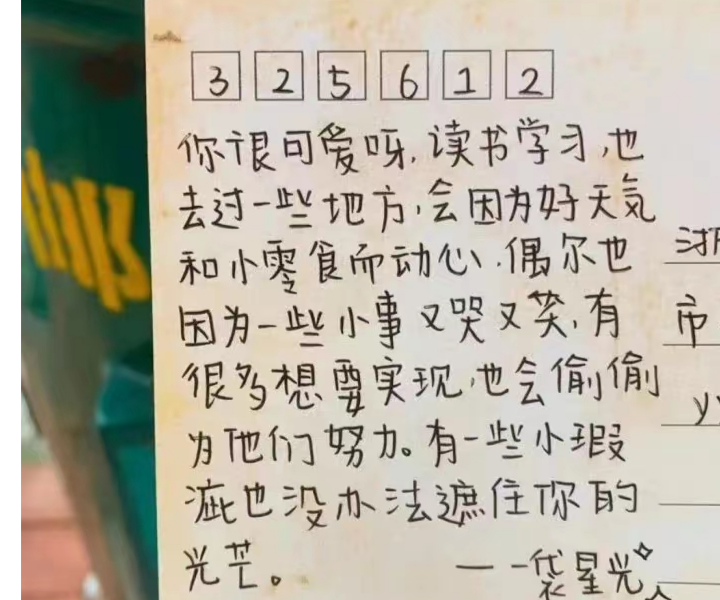 325612
你很可爱呀,读书学习,也
去过一些地方,会因为好天気
和小零食而动心.偶尔也
因为一些小事又哭又笑,有
很多想要实现,也会偷偷
为他们努力。有一些小瑕
疵也没办法遮住你的
光芒。 一一袋星光
市